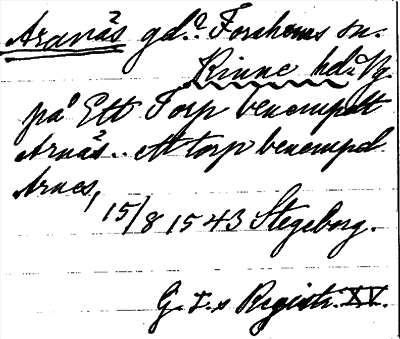 Aranäs gd? Forshems sn.
Kinne hd. Vg
på Ett Torp benempdt
Arnäs.. ett torp benempd
Arnes,
15/8 1543 Stegeborg.
G. I.s Registr. XV.